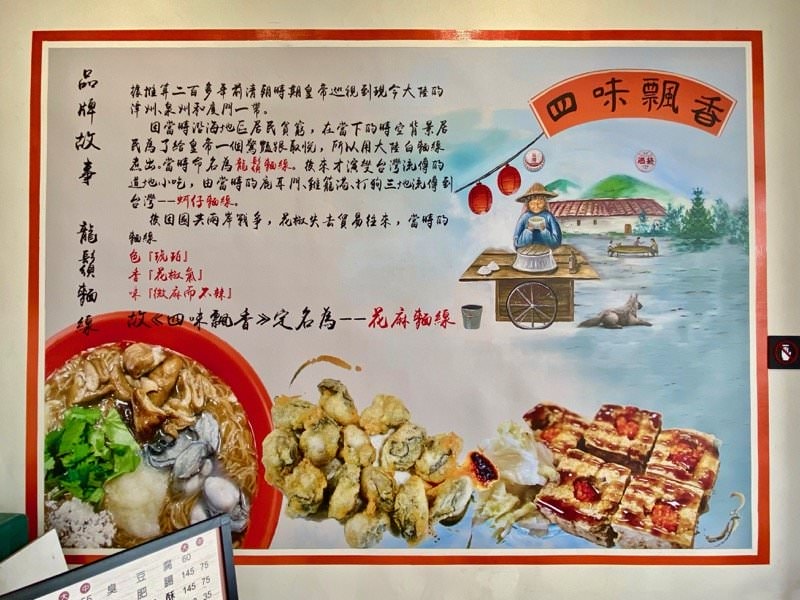 四味飄香
品牌故事 龍鬚麵線
據推算二百多年前清朝時期皇帝巡視到現今大陸的
漳州、泉州和廈門一帶。
因當時沿海地區居民貧窮，在當下的時空背景居
民為了給皇帝一個驚豔跟取悅，所以用大陸白麵線
煮出。當時命名為龍鬚麵線。後來才演變台灣流傳的
道地小吃，由當時的鹿耳門、雞籠港、打狗三地流傳到
台灣——蚵仔麵線。
後因國共兩岸戰爭，花椒失去貿易往來，當時的
麵線
色「琥珀」
香「花椒氣」
味「微麻而不辣」
故《四味飄香》定名為——花麻麵線
大 中
臭豆腐 60
肥腸 145 75
酥 145 75
35